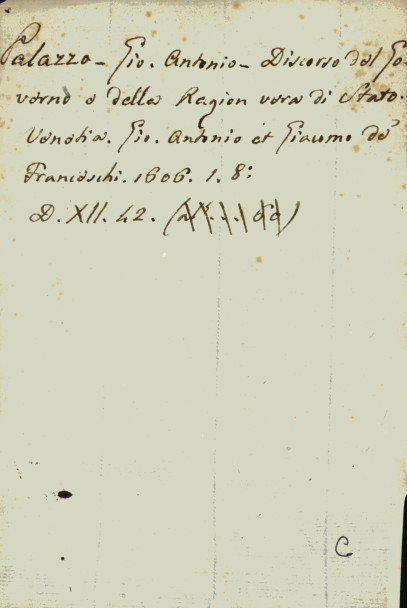 Palazzo - Gio. Antonio - Discorso del Go-
verno e della Ragion vera di Stato.
Venetia. Gio. Antonio et Giacomo de'
Franceschi. 1606. 1. 8:
D. XII. 42.
C